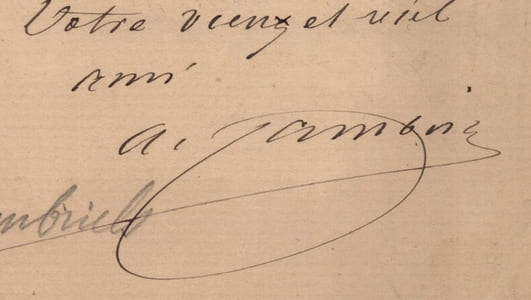 Votre vieux et viel
ami
a. Jambon
mbriels